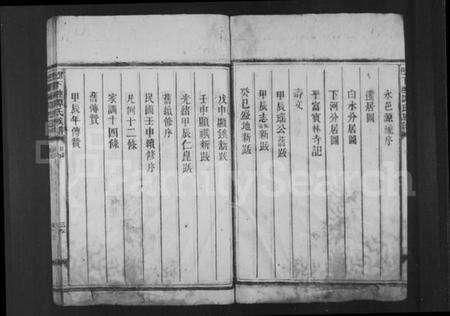 永邑源流序
遷居圖
白水分居圖
下河分居圖
平富寶林寺記
詩文
甲辰瑞公舊跋
甲辰志新跋
癸巳盛地新跋
戊申顯謨新跋
壬申顯祺新跋
光緒甲辰仁崑跋
舊續修序
民國壬申續修序
凡例十二條
家訓十四條
舊傳贊
甲辰年傳贊
FamilySearch